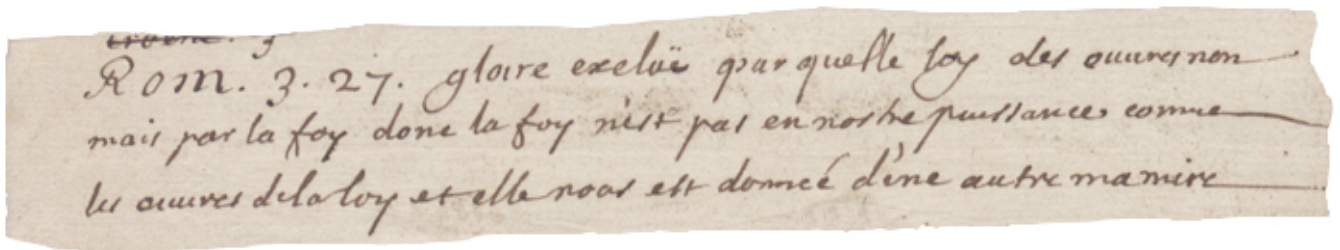 Rom. 3. 27. gloire excluë par quelle loy des œuvres non
mais par la foy donc la foy n'est pas en nostre puissance comme
les œuvres de la loy et elle nous est donneé d'une autre maniere